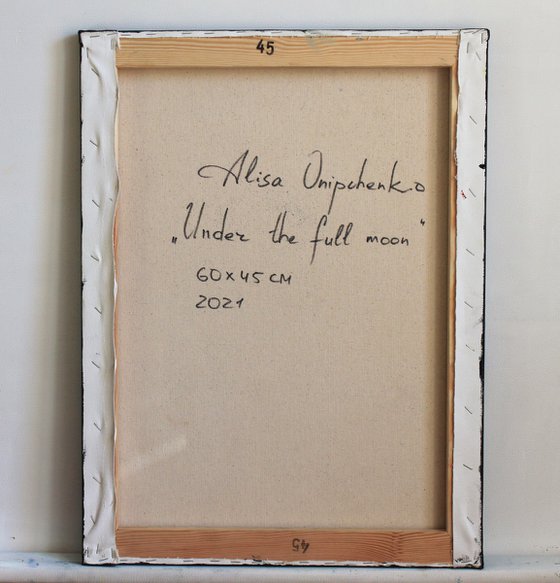 45
Alisa Onipchenko
„Under the full moon“
60x45 см
2021
45